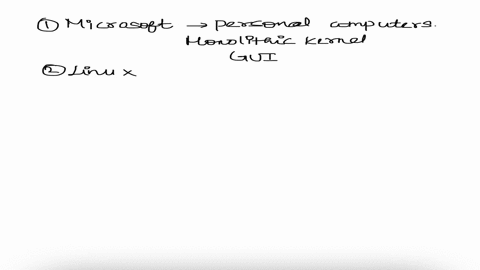 ① Microsoft → personal computers.
Monolithic kernel
GUI
② Linux